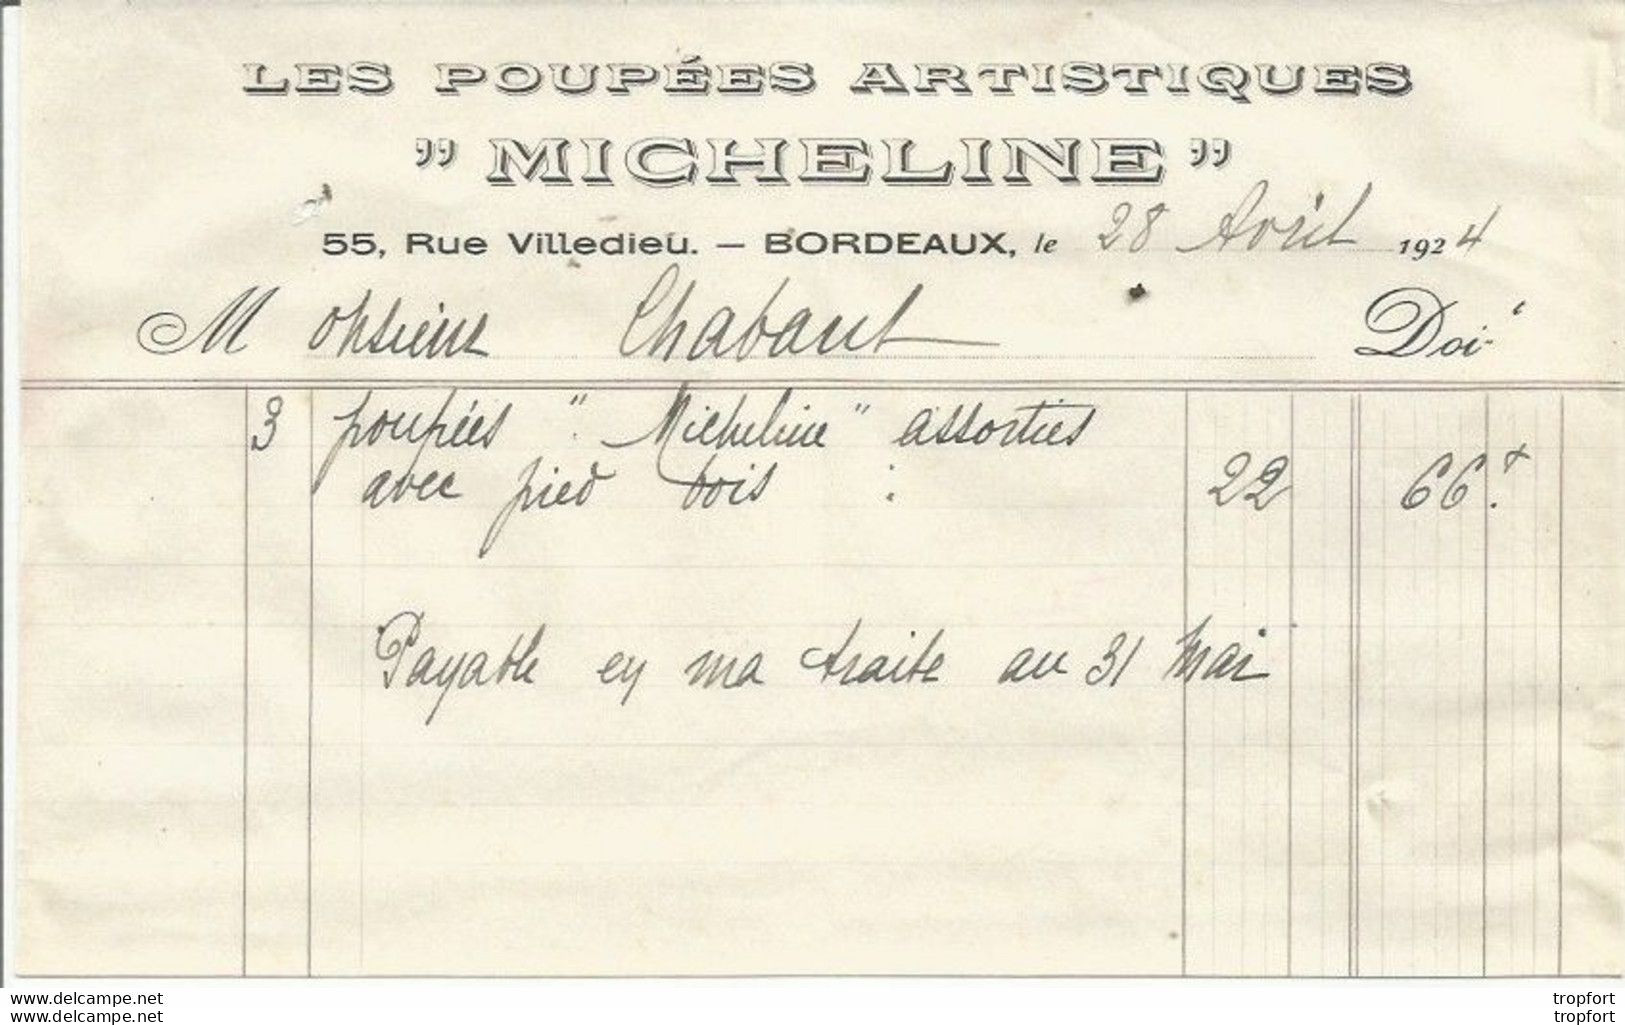 LES POUPÉES ARTISTIQUES
" MICHELINE "
55, Rue Villedieu. — BORDEAUX, le 28 Avril 1924
Monsieur Chabaut Doit
3 poupées " Micheline " assorties
avec pied bois : 22 66.
Payable en ma traite au 31 Mai
www.delcampe.net tropfort
www.delcampe.net tropfort